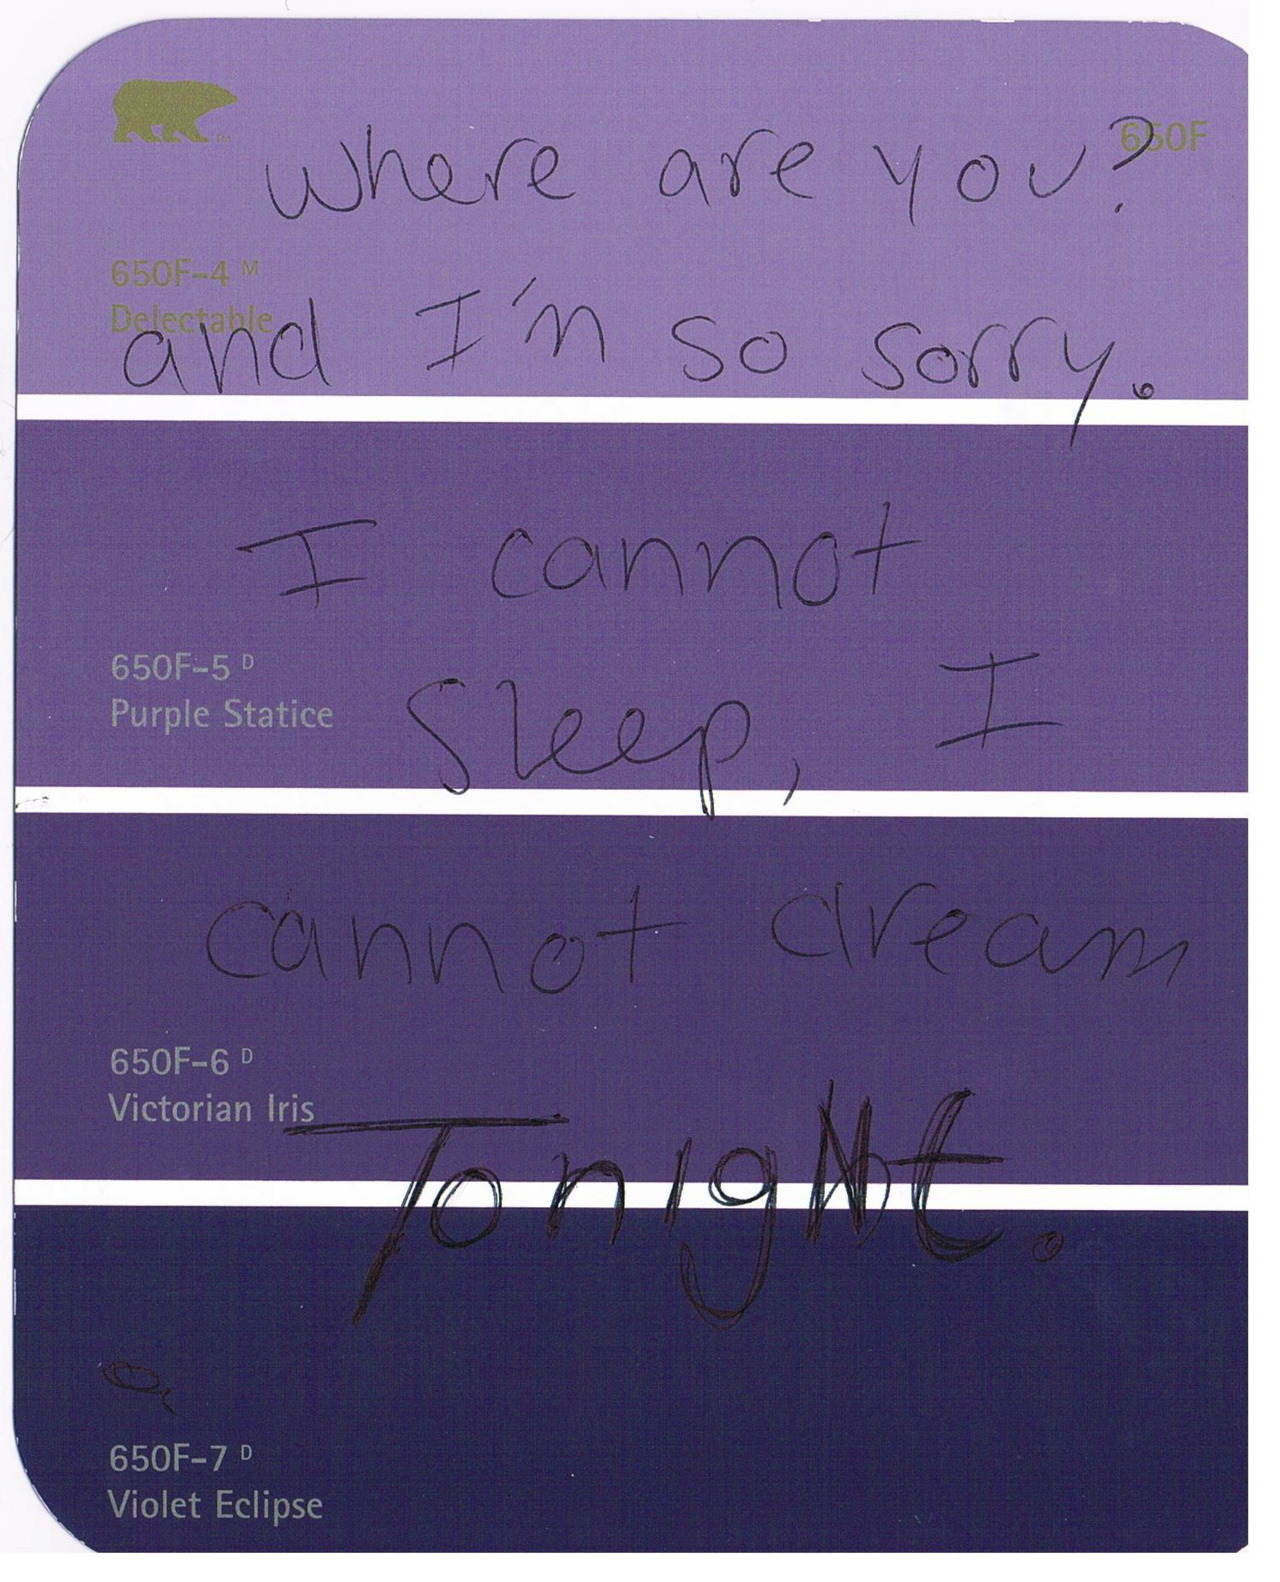 650F
where are you?
650F-4 M
Delectable
and I'm so sorry.
I cannot
650F-5 D
Purple Statice
sleep, I
cannot dream
650F-6 D
Victorian Iris
TonigHt.
650F-7 D
Violet Eclipse